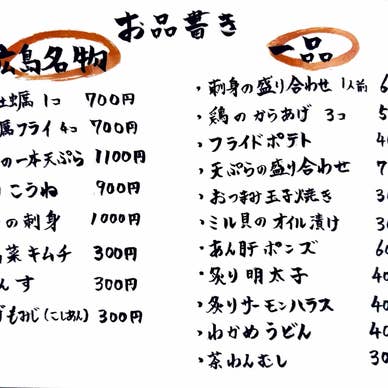 お品書き
広島名物
牡蠣 1コ 700円
蠣フライ 4コ 700円
の一本天ぷら 1100円
こうね 900円
の刺身 1000円
菜キムチ 300円
んす 300円
もみじ(こしあん) 300円
一品
・刺身の盛り合わせ 1人前 6
・鶏のからあげ 3コ 5
・フライドポテト 40
・天ぷらの盛り合わせ 7
・おつまみ玉子焼き 30
・ミル貝のオイル漬け 30
・あん肝ポンズ 60
・炙り明太子 40
・炙りサーモンハラス 40
・わかめうどん 40
・茶わんむし 30